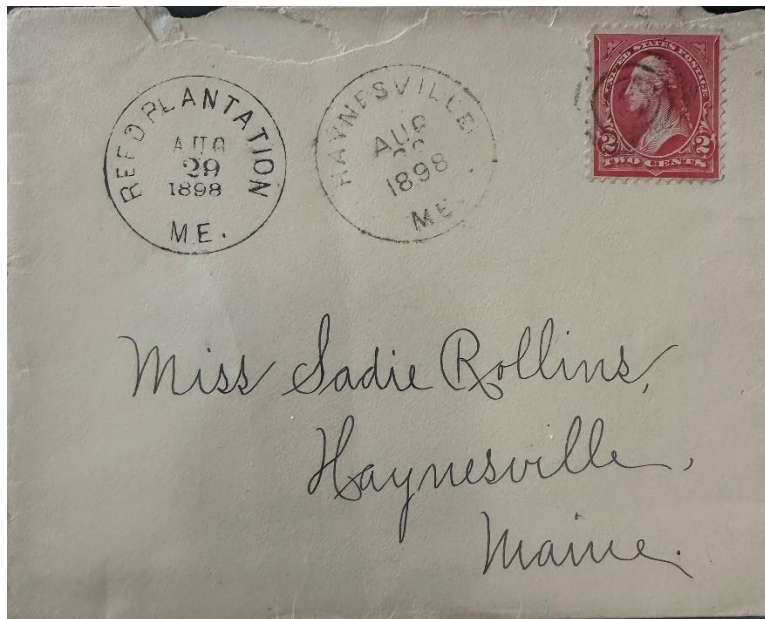 REED PLANTATION
AUG
29
1898
ME.
HAYNESVILLE
AUG
1898
ME.
UNITED STATES POSTAGE
2 2
TWO CENTS
Miss Sadie Rollins,
Haynesville,
Maine.